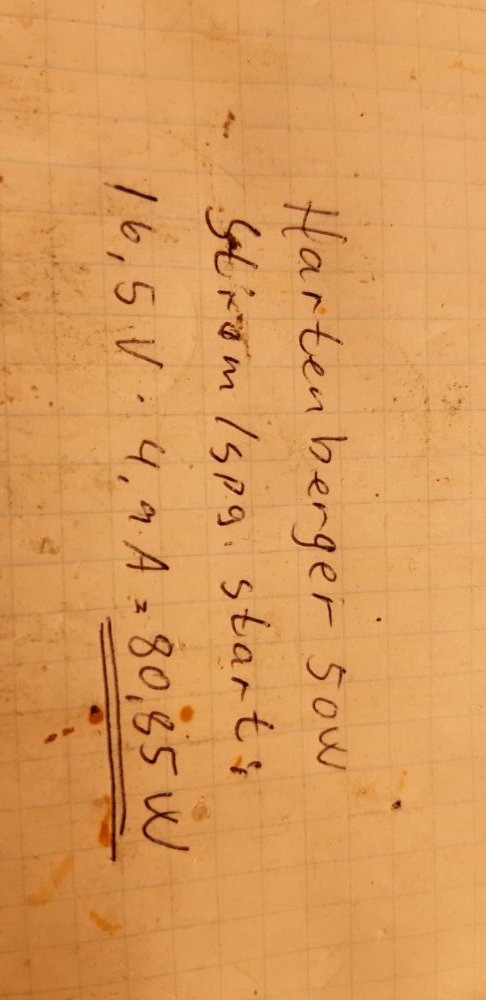 Hartenberger 50W
Strom/spg. start:
16,5 V · 4,9 A = 80,85 W